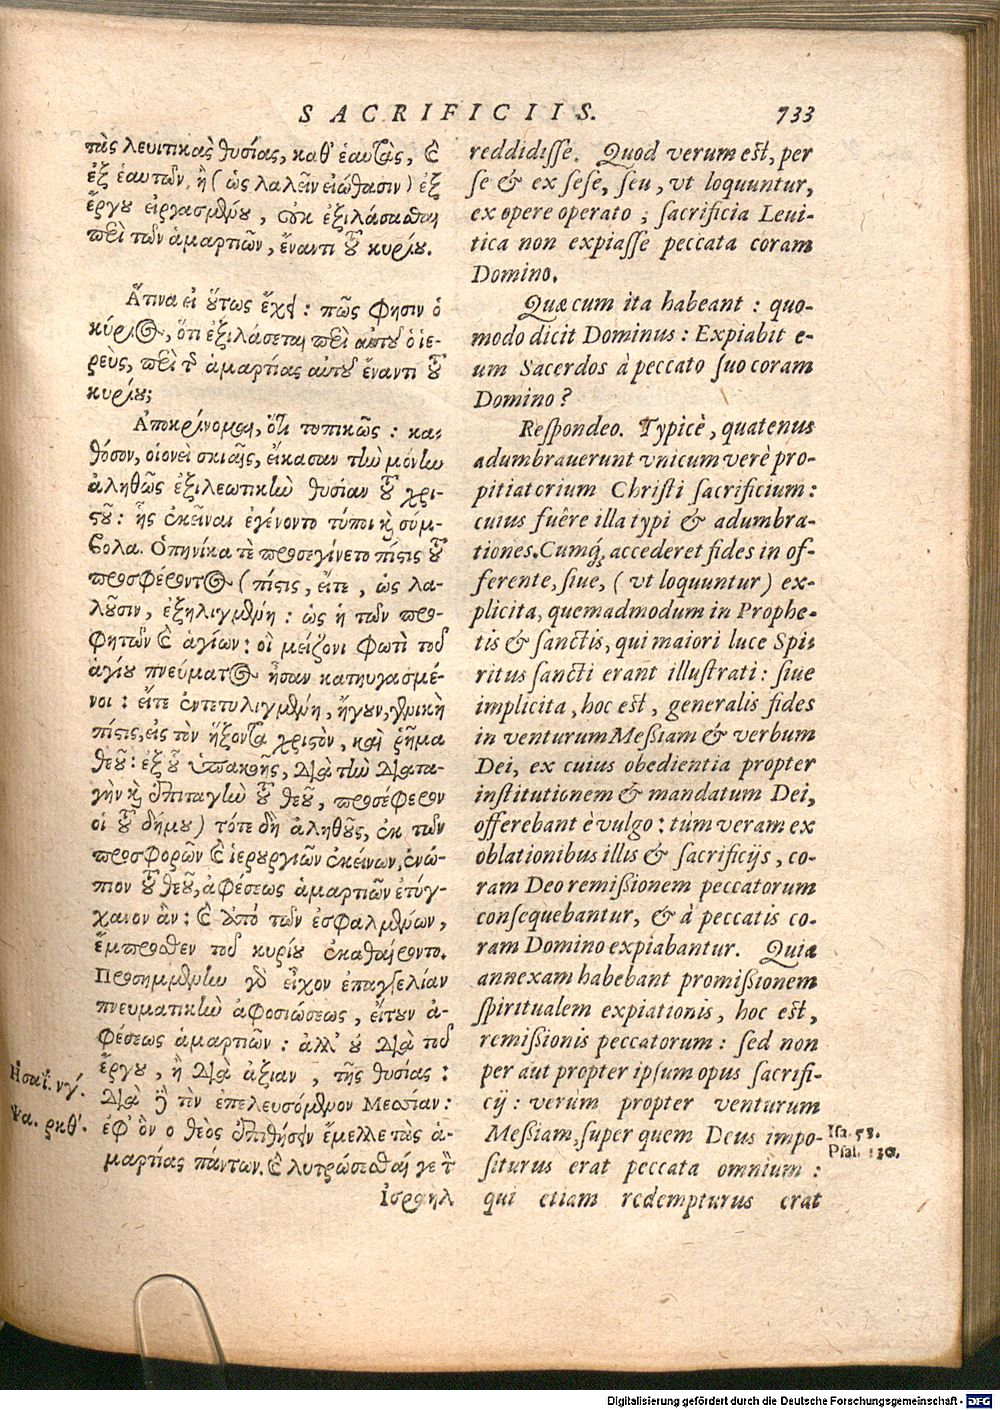 SACRIFICIIS. 733
τὰς λευιτικὰς θυσίας, καθ' ἑαυτὰς, καὶ
ἐξ ἑαυτῶν, ἢ (ὡς λαλεῖν εἰώθασιν) ἐξ
ἔργου εἰργασμένου, οὐκ ἐξιλάσασθαι
περὶ τῶν ἁμαρτιῶν, ἔναντι τοῦ κυρίου.
Ἅτινα εἰ οὕτως ἔχει: πῶς φησιν ὁ
κύριος, ὅτι ἐξιλάσεται περὶ αὐτοῦ ὁ ἱε-
ρεὺς, περὶ τῆς ἁμαρτίας αὐτοῦ ἔναντι τοῦ
κυρίου;
Ἀποκρίνομαι, ὅτι τυπικῶς: κα-
θόσον, οἱονεὶ σκιαῖς, εἴκασαν τὴν μόνην
ἀληθῶς ἐξιλεωτικὴν θυσίαν τοῦ χρι-
στοῦ: ἧς ἐκεῖναι ἐγένοντο τύποι καὶ σύμ-
βολα. Ὁπηνίκα τὲ προσεγίνετο πίστις τοῦ
προσφέροντος (πίστις, εἴτε, ὡς λα-
λοῦσιν, ἐξηλιγμένη: ὡς ἡ τῶν προ-
φητῶν καὶ ἁγίων: οἳ μείζονι φωτὶ τοῦ
ἁγίου πνεύματος ἦσαν κατηυγασμέ-
νοι: εἴτε ἐντετυλιγμένη, ἤγουν, γενικὴ
πίστις, εἰς τὸν ἥξοντα χριστὸν, καὶ ῥῆμα
θεοῦ: ἐξ οὗ ὑπακοῆς, διὰ τὴν διατα-
γὴν καὶ ἐπιταγὴν τοῦ θεοῦ, προσέφερον
οἱ τοῦ δήμου) τότε δὴ ἀληθοῦς, ἐκ τῶν
προσφορῶν καὶ ἱερουργιῶν ἐκείνων, ἐνώ-
πιον τοῦ θεοῦ, ἀφέσεως ἁμαρτιῶν ἐτύγ-
χανον ἂν: καὶ ἀπὸ τῶν ἐσφαλμένων,
ἔμπροσθεν τοῦ κυρίου ἐκαθαίροντο.
Προσημμένην γὰρ εἶχον ἐπαγγελίαν
πνευματικὴν ἀφοσιώσεως, εἴτουν ἀ-
φέσεως ἁμαρτιῶν: ἀλλ' οὐ διὰ τοῦ
ἔργου, ἢ διὰ ἀξίαν, τῆς θυσίας:
διὰ δὲ τὸν ἐπελευσόμενον Μεσσίαν:
ἐφ' ὃν ὁ θεὸς ἐπιθήσειν ἔμελλε τὰς ἁ-
μαρτίας πάντων. καὶ λυτρώσεσθαί γε τὸν
Ἰσραὴλ
Ἡσαΐ. νγ'.
Ψα. ρκθ'.
reddidisse. Quod verum est, per
se & ex sese, seu, vt loquuntur,
ex opere operato, sacrificia Leui-
tica non expiasse peccata coram
Domino.
Quæ cum ita habeant: quo-
modo dicit Dominus: Expiabit e-
um Sacerdos à peccato suo coram
Domino?
Respondeo. Typicè, quatenus
adumbrauerunt vnicum verè pro-
pitiatorium Christi sacrificium:
cuius fuêre illa typi & adumbra-
tiones. Cumq́; accederet fides in of-
ferente, siue, (vt loquuntur) ex-
plicita, quemadmodum in Prophe-
tis & sanctis, qui maiori luce Spi-
ritus sancti erant illustrati: siue
implicita, hoc est, generalis fides
in venturum Messiam & verbum
Dei, ex cuius obedientia propter
institutionem & mandatum Dei,
offerebant è vulgo: tùm veram ex
oblationibus illis & sacrificijs, co-
ram Deo remissionem peccatorum
consequebantur, & à peccatis co-
ram Domino expiabantur. Quia
annexam habebant promissionem
spiritualem expiationis, hoc est,
remissionis peccatorum: sed non
per aut propter ipsum opus sacrifi-
cij: verùm propter venturum
Messiam, super quem Deus impo-
siturus erat peccata omnium:
qui etiam redempturus erat
Isa. 53.
Psal. 130.
Digitalisierung gefördert durch die Deutsche Forschungsgemeinschaft - DFG